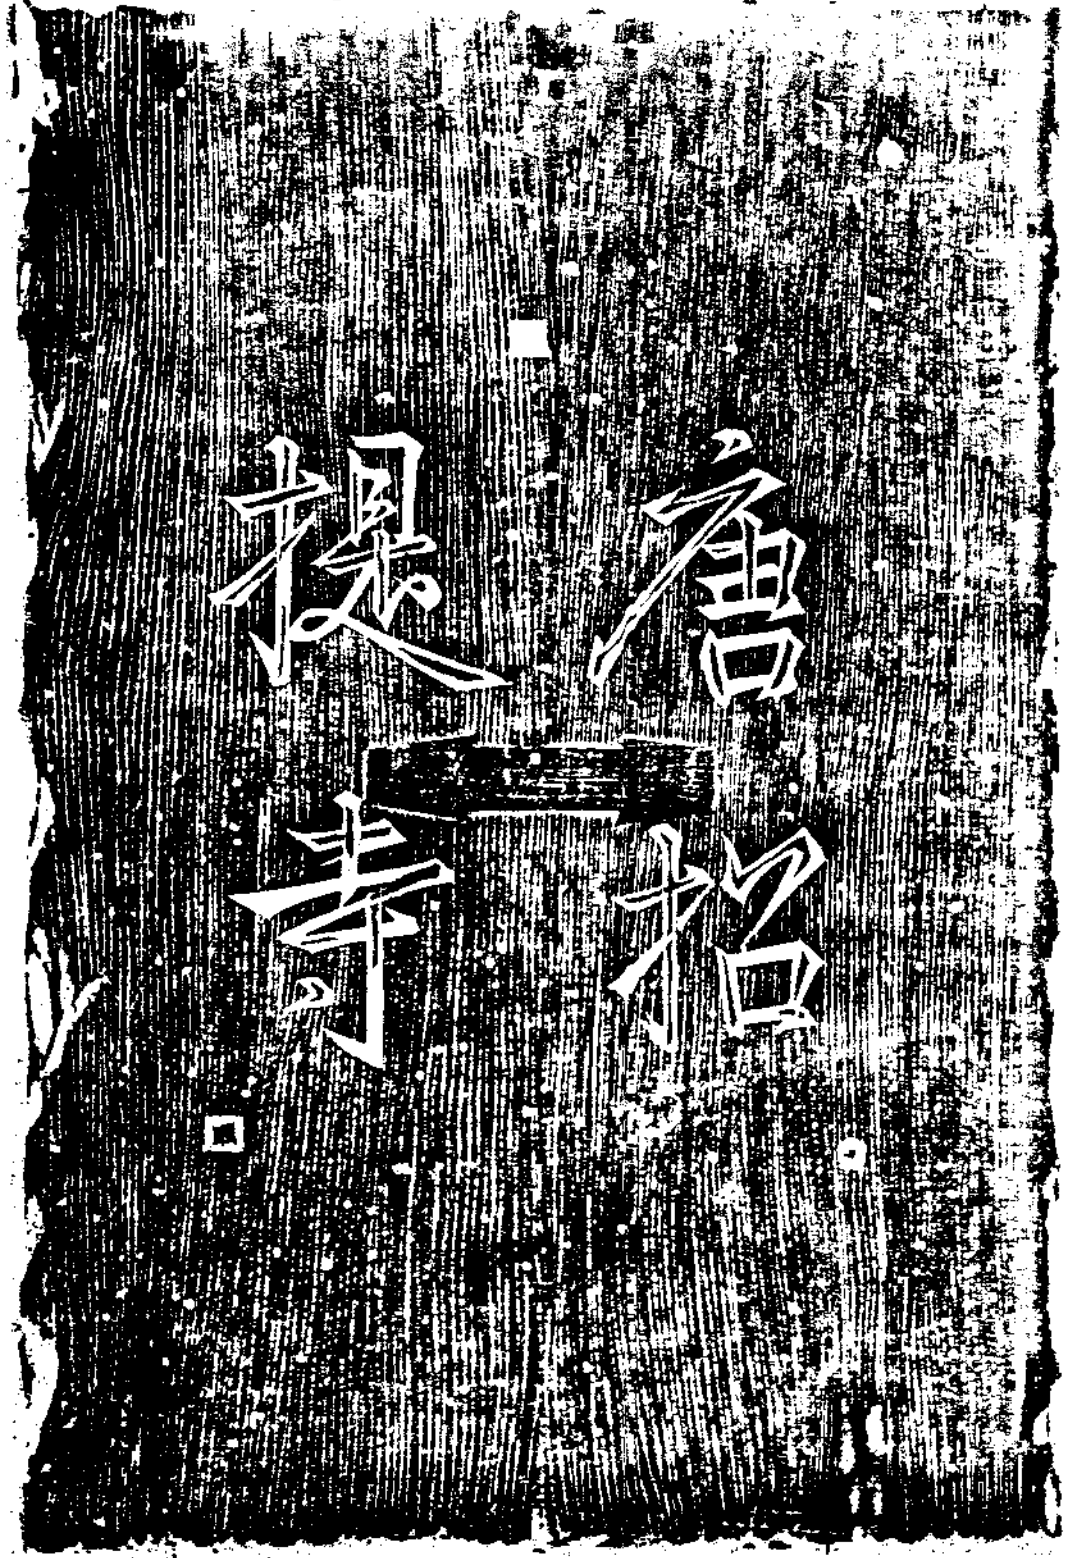 唐招
提寺